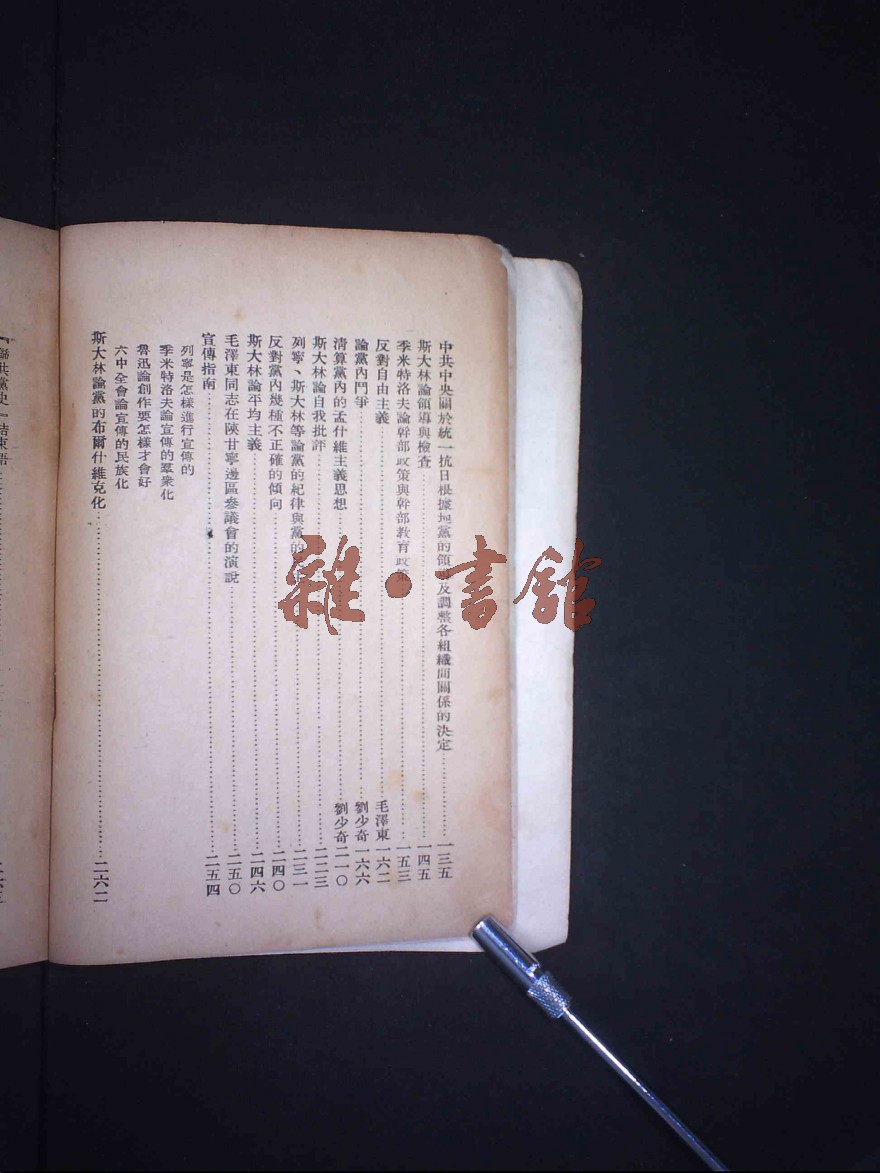 中共中央關於統一抗日根據地黨的領 及調整各組織間關係的決定…………一三五
斯大林論領導與檢查…………一四五
季米特洛夫論幹部政策與幹部教育政策…………一五三
反對自由主義…………毛澤東一六二
論黨內鬥爭…………劉少奇一六六
清算黨內的孟什維主義思想…………劉少奇二一〇
斯大林論自我批評…………二二三
列寧、斯大林等論黨的紀律與黨的…………二三一
反對黨內幾種不正確的傾向…………二四〇
斯大林論平均主義…………二四六
毛澤東同志在陝甘寧邊區參議會的演說…………二五〇
宣傳指南…………二五四
列寧是怎樣進行宣傳的
季米特洛夫論宣傳的羣衆化
魯迅論創作要怎樣才會好
六中全會論宣傳的民族化
斯大林論黨的布爾什維克化…………二六二
『聯共黨史』結束語…………
雜·書館